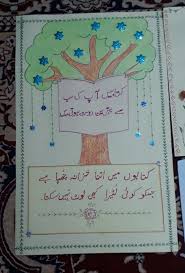 کتابیں آپ کی سب
سے بہترین دوست ہوتی ہیں
کتابوں میں اتنا خزانہ چھپا ہے
جسکو کوئی لٹیرا بھی لوٹ نہیں سکتا۔